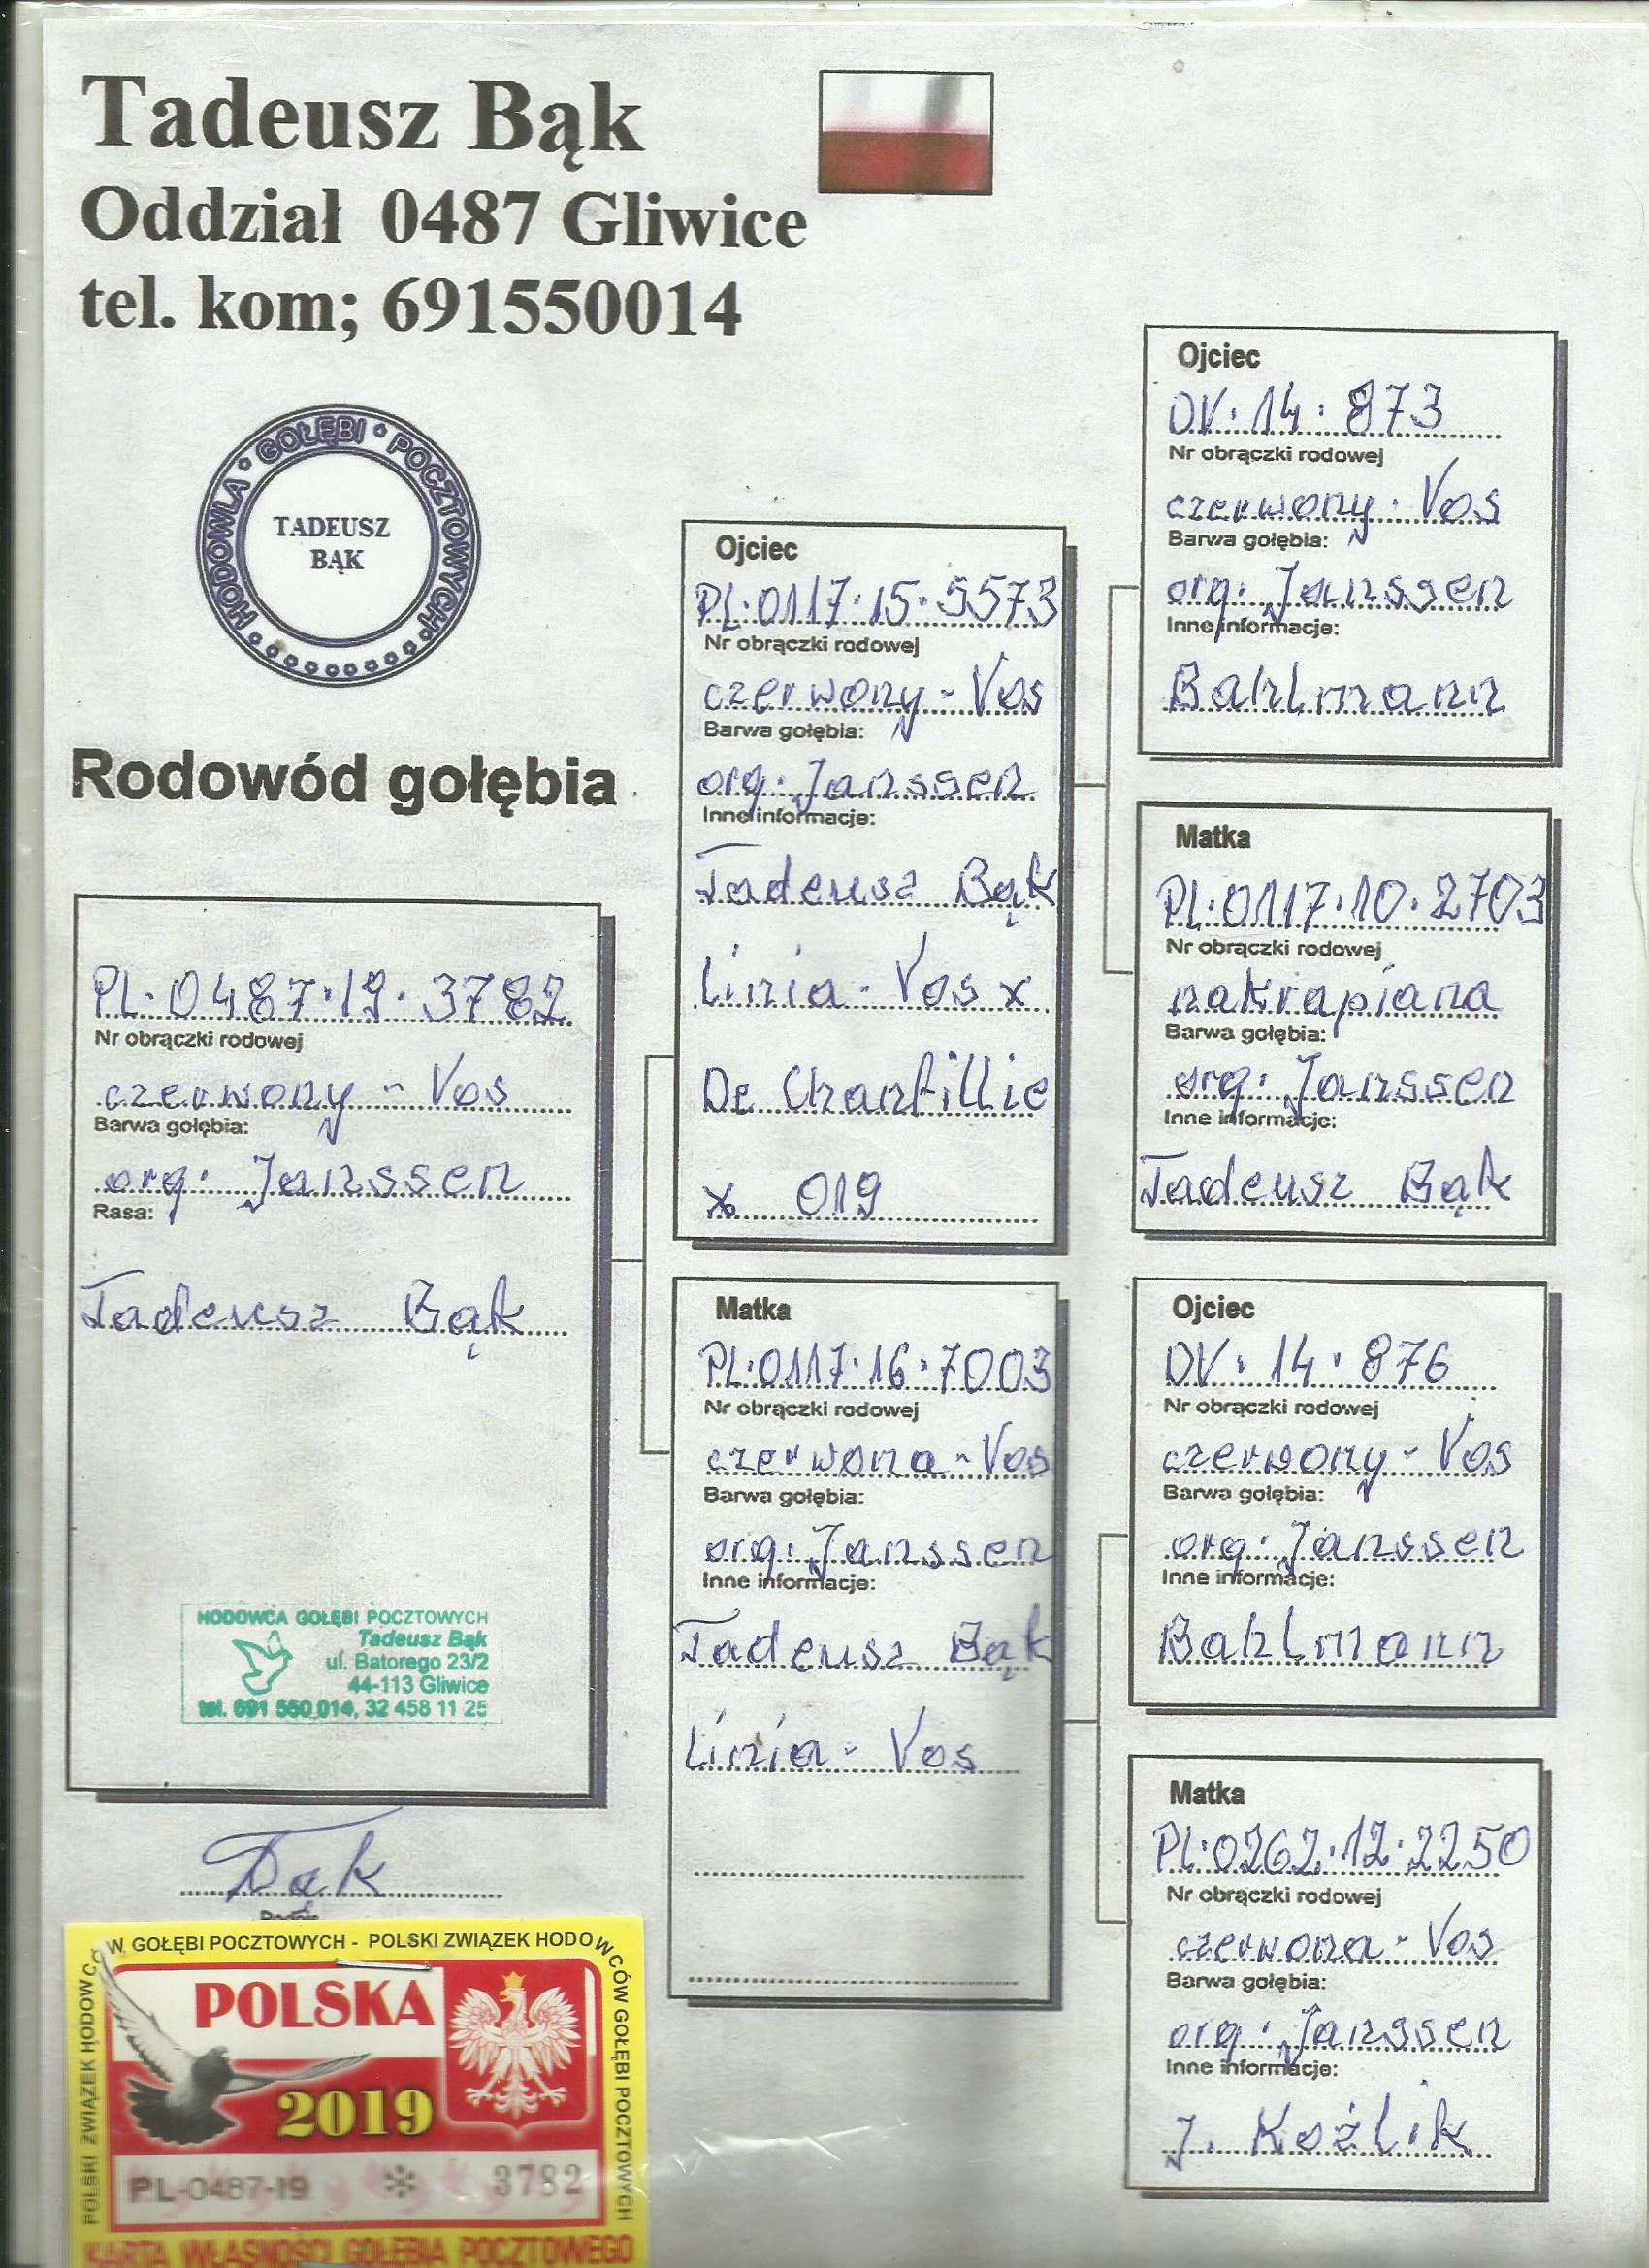 Tadeusz Bąk
Oddział 0487 Gliwice
tel. kom; 691550014
HODOWLA • GOŁĘBI • POCZTOWYCH
TADEUSZ
BĄK
Rodowód gołębia
PL·0487·19·3782
Nr obrączki rodowej
czerwony - Vos
Barwa gołębia:
org. Janssen
Rasa:
Tadeusz Bąk
HODOWCA GOŁĘBI POCZTOWYCH
Tadeusz Bąk
ul. Batorego 23/2
44-113 Gliwice
tel. 691 550 014, 32 458 11 25
Bąk
Podpis
Ojciec
PL·0117·15·5573
Nr obrączki rodowej
czerwony - Vos
Barwa gołębia:
org. Janssen
Inne informacje:
Tadeusz Bąk
Linia - Vos x
De Chantillie
x 019
Matka
PL·0117·16·7003
Nr obrączki rodowej
czerwona - Vos
Barwa gołębia:
org. Janssen
Inne informacje:
Tadeusz Bąk
Linia - Vos
Ojciec
DV·14·873
Nr obrączki rodowej
czerwony · Vos
Barwa gołębia:
org. Janssen
Inne informacje:
Bahlmann
Matka
PL·0117·10·2703
Nr obrączki rodowej
nakrapiana
Barwa gołębia:
org. Janssen
Inne informacje:
Tadeusz Bąk
Ojciec
DV·14·876
Nr obrączki rodowej
czerwony - Vos
Barwa gołębia:
org. Janssen
Inne informacje:
Bahlmann
Matka
PL·0262·12·2250
Nr obrączki rodowej
czerwona - Vos
Barwa gołębia:
org. Janssen
Inne informacje:
J. Koźlik
POLSKI ZWIĄZEK HODOWCÓW GOŁĘBI POCZTOWYCH - POLSKI ZWIĄZEK HODOWCÓW GOŁĘBI POCZTOWYCH
POLSKA
2019
PL-0487-19 * 3782
KARTA WŁASNOŚCI GOŁĘBIA POCZTOWEGO